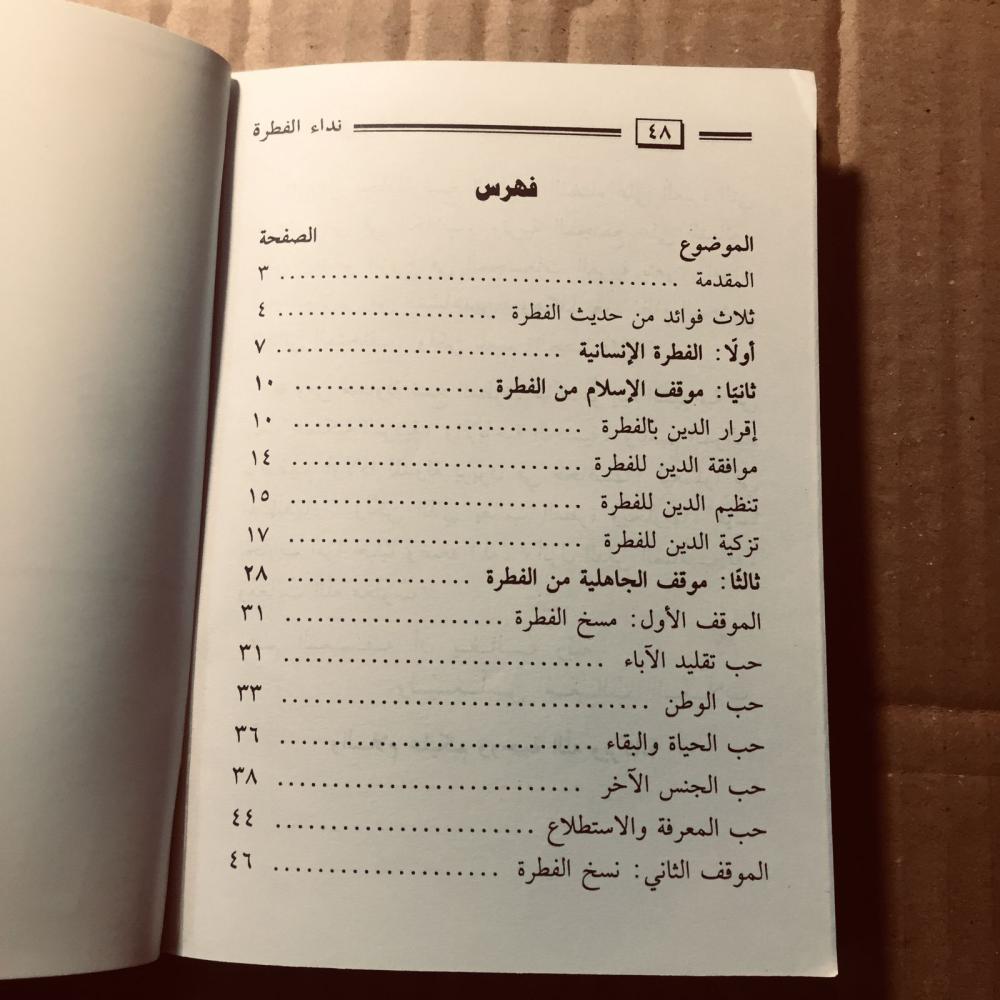 ٤٨ نداء الفطرة
فهرس
الموضوع الصفحة
المقدمة ........................................ ٣
ثلاث فوائد من حديث الفطرة .................... ٤
أولًا: الفطرة الإنسانية .......................... ٧
ثانيًا: موقف الإسلام من الفطرة ................. ١٠
إقرار الدين بالفطرة .......................... ١٠
موافقة الدين للفطرة .......................... ١٤
تنظيم الدين للفطرة .......................... ١٥
تزكية الدين للفطرة .......................... ١٧
ثالثًا: موقف الجاهلية من الفطرة ................. ٢٨
الموقف الأول: مسخ الفطرة .................... ٣١
حب تقليد الآباء ............................. ٣١
حب الوطن ................................. ٣٣
حب الحياة والبقاء ............................ ٣٦
حب الجنس الآخر ............................ ٣٨
حب المعرفة والاستطلاع ........................ ٤٤
الموقف الثاني: نسخ الفطرة .................... ٤٦